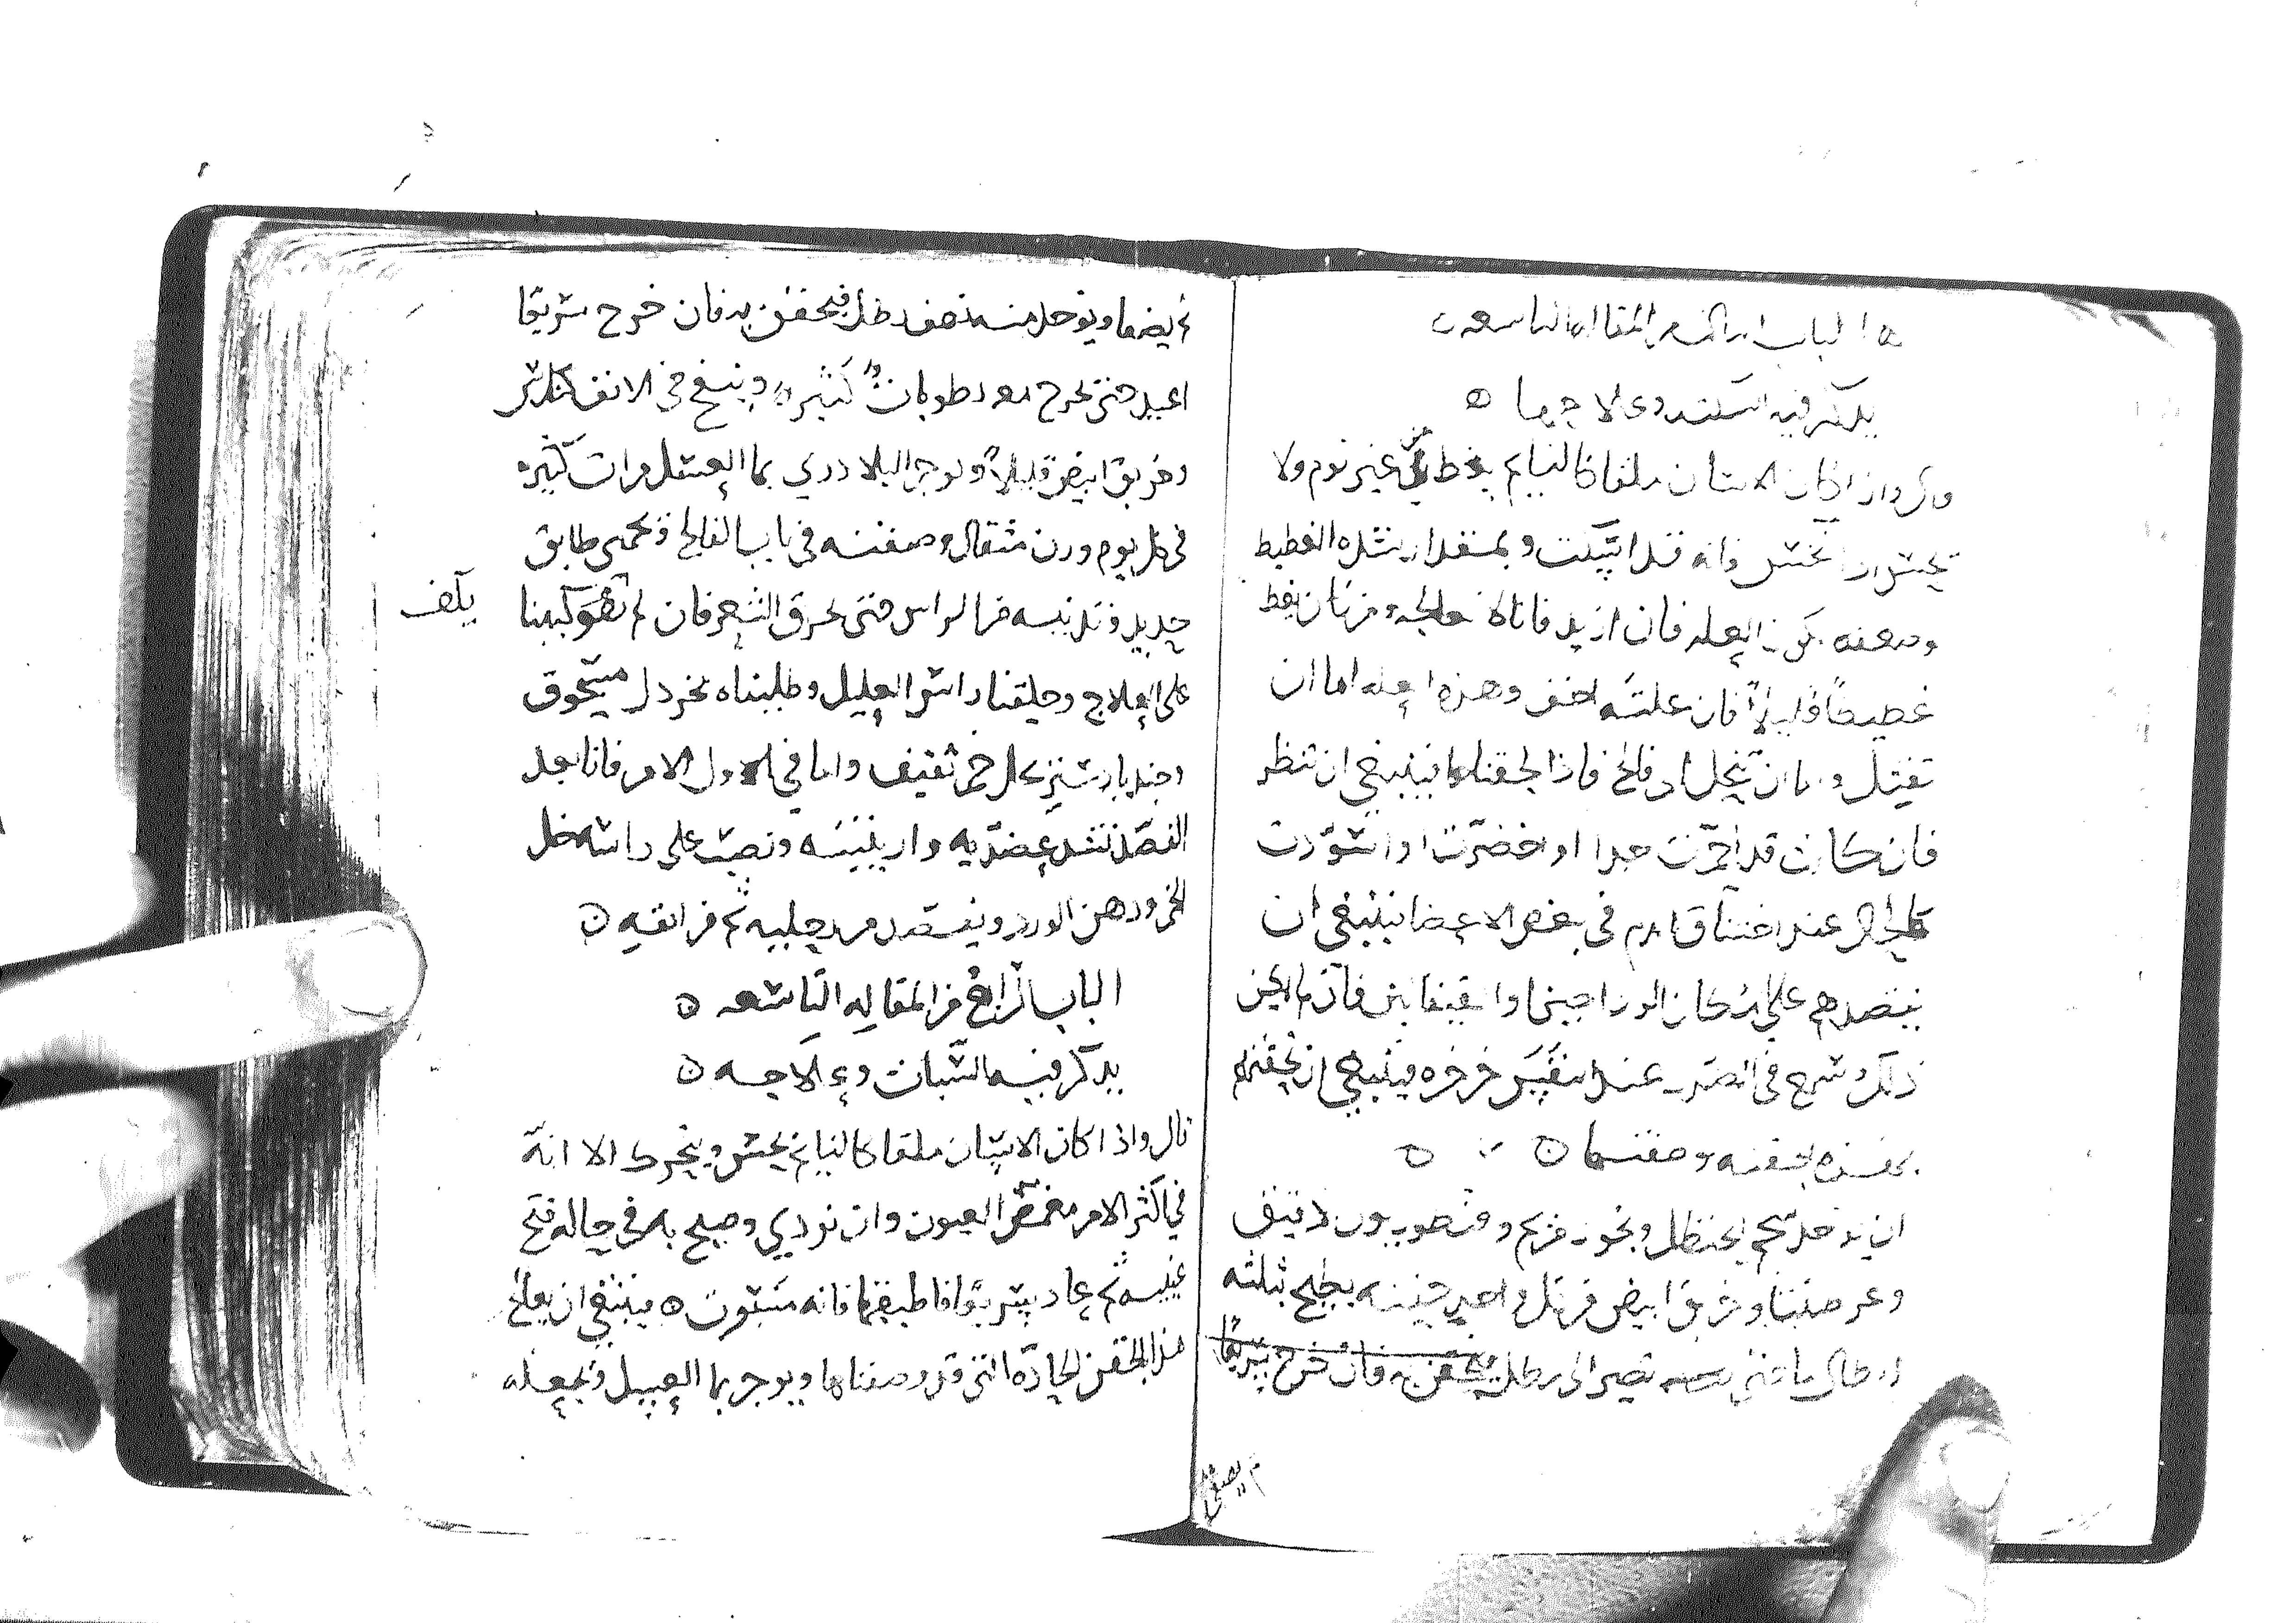 الباب الثالث من المقاله التاسعه
يذكر فيه السكته وعلاجها
قال واذا كان الانسان ملقا كالنايم يغط من غير نوم ولا
يحس اذا نخس فانه قد اسكت وبمقدار شده الغطيط
وصعفه تكون العله فان ازيد فاناكا علجه ومن كان يغط
غطيطاً قليلاً فان علته اخف وهذه العله اما ان
تقتل واما ان تنحل الى فالج فاذا لحقناها فينبغي ان تنظر
فان كانت قد احمرت جدا او اخضرت او اسودت
كالحال عند اختناق الدم في بعض الاعضا فينبغي ان
نفصدهم على المكان الوداجين او القيفالين فان لم يكن
ذلك وسمع في الصدر عند التنفس خرخره فينبغي ان نحقنهم
بهذه الحقنه وصفتها
ان يوخذ شحم الحنظل وبخور مريم وقنطوريون دقيق
وعرطنيثا وخربق ابيض من كل واحد حفنه يطبخ بثلثه
ارطال ما حتى يصير الى رطل يحقن به فان خرج سريعا
ثم يصفى
ثم يصفا ويوخذ منه نصف رطل فيحقن به فان خرج سريعا
اعيد حتى تخرج معه رطوبات كثيره وينفخ في الانف كندس
وخربق ابيض قليلاً ويوجر البلادري بما العسل مرات كثيره
في كل يوم وزن مثقال وصفته في باب الفالج وتحمى طابق
حديد وتدنيه من الراس حتى يحرق الشعر فان لم نقو كببنا
يكف
على العلاج وحلقنا راس العليل وطليناه بخردل مسحوق
وجندبادستر بخل خمر ثقيف واما في الاول الامر فانا بعد
الفصد نشد عضديه واربيتيه ونصب على راسه خل
الخمر ودهن الورد ويفصد من رجليه ثم من انفه
الباب الرابع من المقاله التاسعه
يذكر فيه السبات وعلاجه
قال واذا كان الانسان ملقا كالنايم يحس ويتحرك الا انه
في اكثر الامر مغمض العيون وان نودي وصيح به في حاله فتح
عينيه ثم عاد سريعا فاطبقها فانه مسبوت فينبغي ان يعالج
هذا بالحقن الحاده التي قد وصفناها ويوجر بما العسل وتجعله